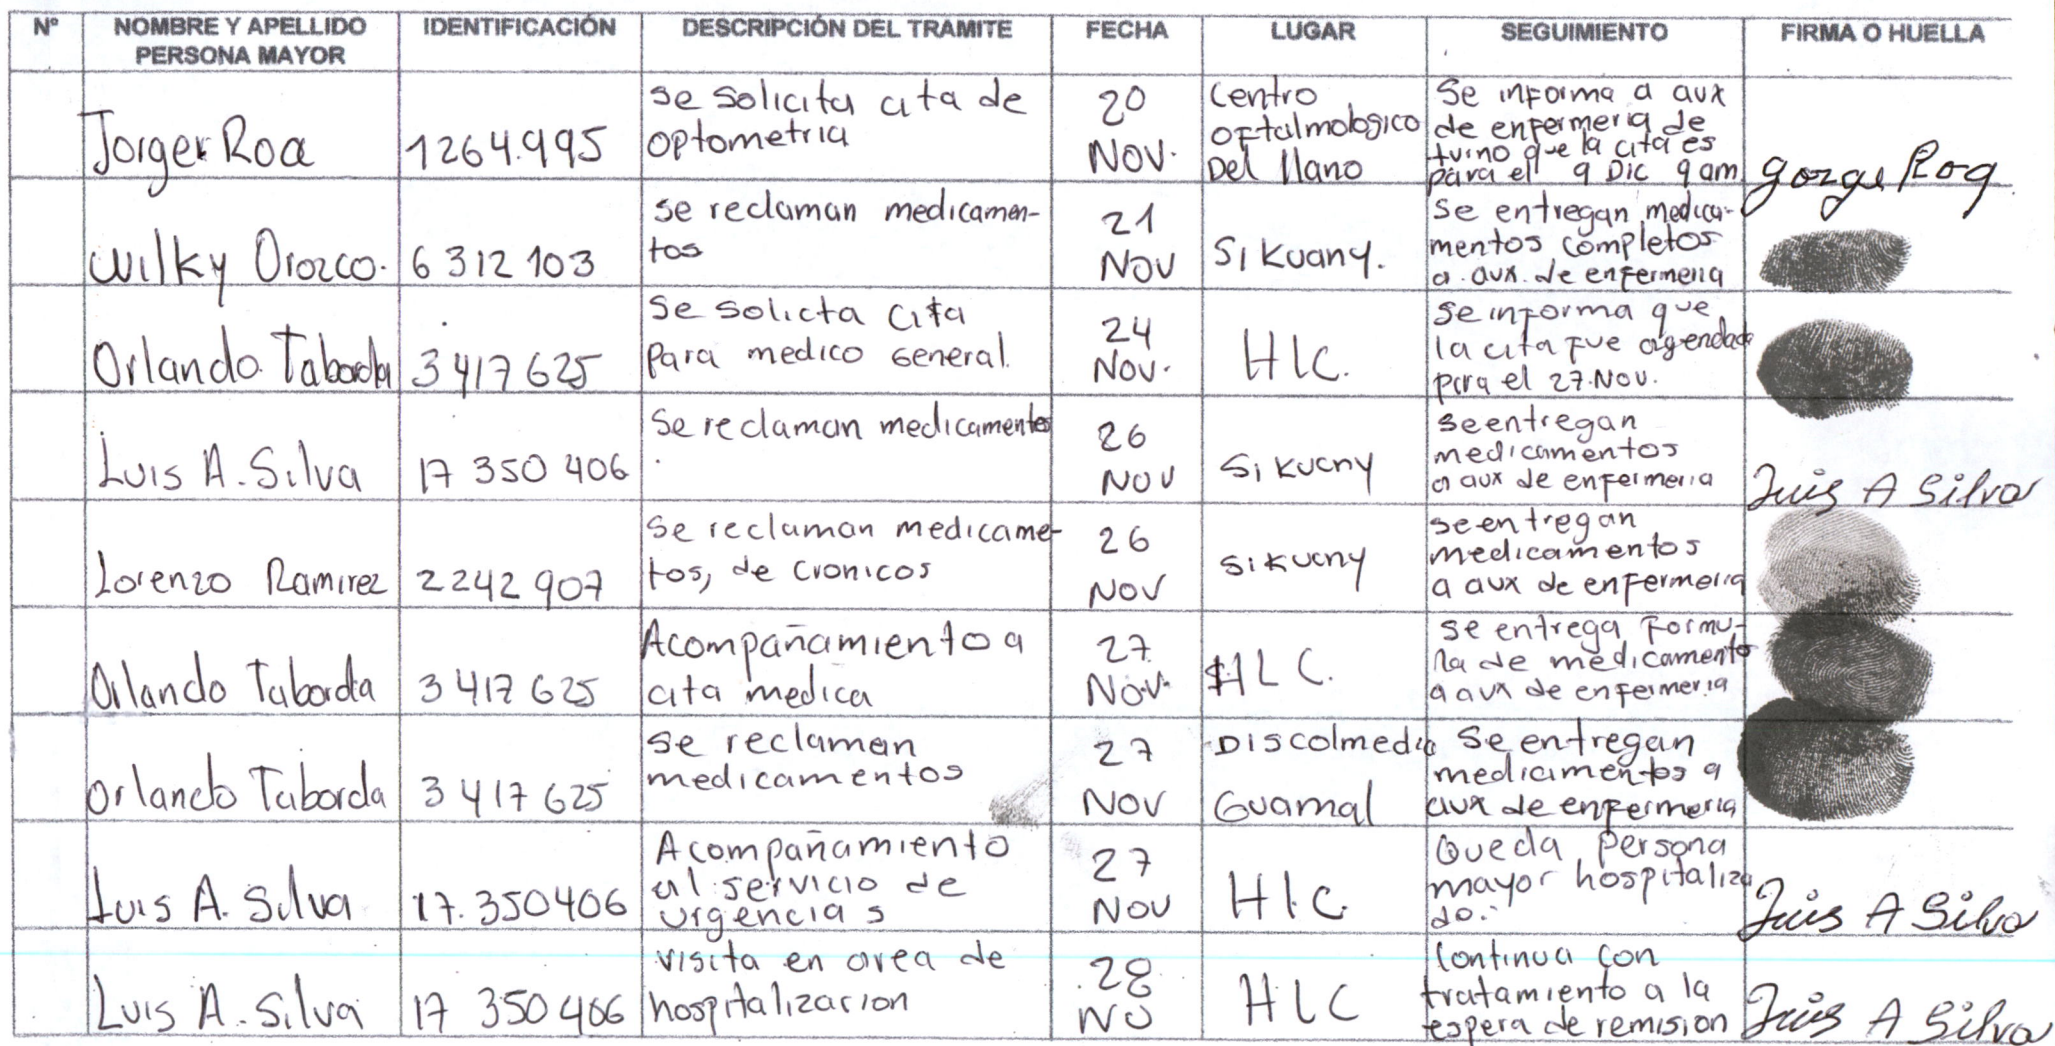 Nº NOMBRE Y APELLIDO PERSONA MAYOR IDENTIFICACIÓN DESCRIPCIÓN DEL TRAMITE FECHA LUGAR SEGUIMIENTO FIRMA O HUELLA
Jorger Roa
1264.995
se solicita cita de
optometria
20
NOV.
Centro
oftalmologico
Del llano
Se informa a aux
de enfermeria de
turno que la cita es
para el 9 Dic 9 am
gorge Roa
Wilky Orozco.
6 312 103
se reclaman medicamen-
tos
21
NOV
Si Kuany.
Se entregan medica-
mentos completos
a aux. de enfermeria
Orlando Taborda
3 417 625
Se solicta cita
para medico General.
24
Nov.
HLC.
se informa que
la cita fue agendada
para el 27.NOV.
Luis A. Silva
17 350 406
Se reclaman medicamentos
26
NOV
Si kuany
se entregan
medicamentos
a aux de enfermeria
Luis A Silva
Lorenzo Ramirez
2242 907
Se reclaman medicame-
tos, de cronicos
26
NOV
sikuany
se entregan
medicamentos
a aux de enfermeria
Orlando Taborda
3 417 625
Acompañamiento a
cita medica
27
NOV.
HLC.
Se entrega formu-
la de medicamento
a aux de enfermeria
Orlando Taborda
3 417 625
se reclaman
medicamentos
27
NOV
Discolmedic
Guamal
Se entregan
medicamentos a
aux de enfermeria
Luis A. Silva
17.350406
Acompañamiento
al servicio de
urgencias
27
NOV
HLC.
Queda Persona
mayor hospitaliza
do.
Luis A Silva
Luis A. Silva
17 350 406
visita en area de
hospitalizacion
28
NO
HLC
Continua con
tratamiento a la
espera de remision
Luis A Silva